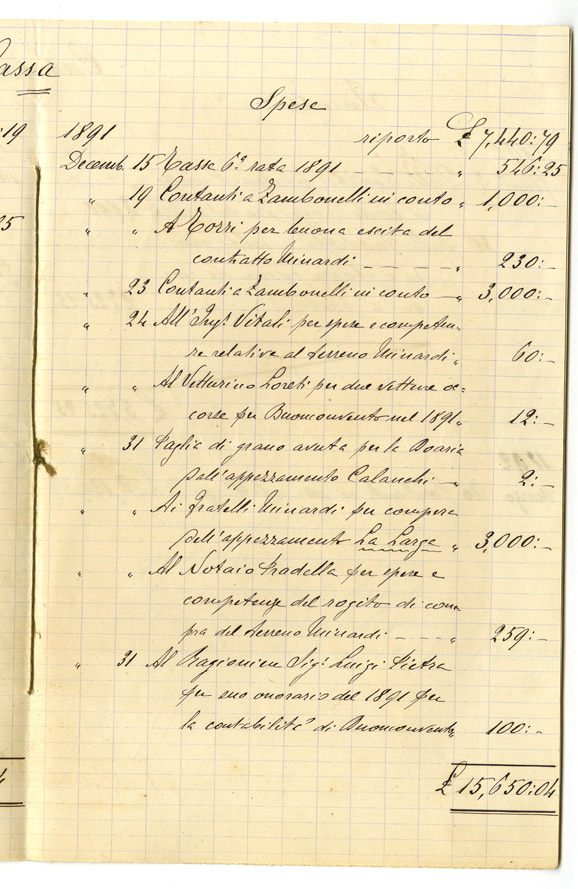 assa
Spese
:19 1891 riporto £ 7,440:79
Decemb. 15 Tasse 6ª rata 1891 — — — " 546:25
" 19 Contanti a Zambonelli in conto " 1,000:—
" " A Torri per buona escita del
25
contratto Minardi — — — — " 230:—
" 23 Contanti a Zambonelli in conto — " 3,000:—
" 24 All'Ing.r Vitali per spese e competen-
ze relative al terreno Minardi " 60:—
" " Al Vetturino Loreti per due vetture oc=
corse per Buonconvento nel 1891 " 12:—
" 31 Paglia di grano avuta per la Boaria
dall'appezzamento Calanchi — " 2:—
" " Ai fratelli Minardi per compera
dell'appezzamento La Larga " 3,000:—
" " Al Notaio Pradella per spese e
competenze del rogito di com-
pra del terreno Minardi — — — " 259:—
" 31 Al Ragioniere Sig.r Luigi Pietra
per suo onorario del 1891 per
la contabilità di Buonconvento " 100:—
4 £ 15,650:04